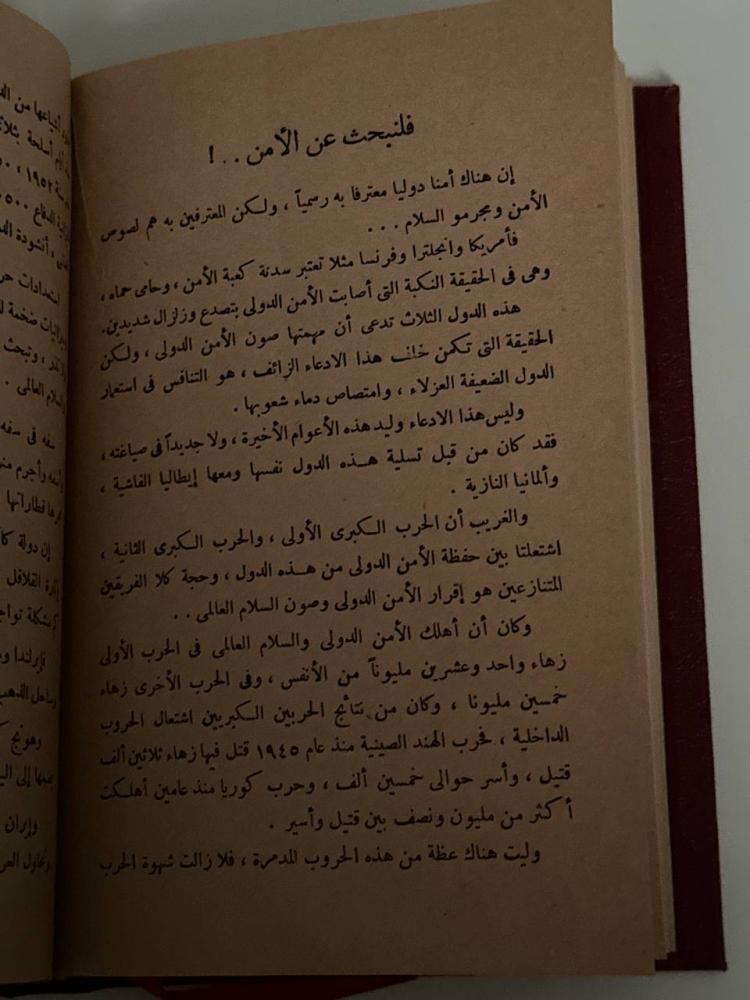 فلنبحث عن الأمن . . !
إن هناك أمنا دوليا معترفا به رسمياً ، ولكن المعترفين به هم لصوص
الأمن ومجرمو السلام . . .
فأمريكا وانجلترا وفرنسا مثلا تعتبر سدنة كعبة الأمن ، وحامى حماه ،
وهى فى الحقيقة النكبة التى أصابت الأمن الدولى بتصدع وزلزال شديدين.
هذه الدول الثلاث تدعى أن مهمتها صون الأمن الدولى ، ولكن
الحقيقة التى تكمن خلف هذا الادعاء الزائف ، هو التنافس فى استعمار
الدول الضعيفة العزلاء ، وامتصاص دماء شعوبها .
وليس هذا الادعاء وليد هذه الأعوام الأخيرة ، ولا جديداً فى صياغته ،
فقد كان من قبل تسلية هذه الدول نفسها ومعها إيطاليا الفاشية ،
وألمانيا النازية .
والغريب أن الحرب الكبرى الأولى ، والحرب الكبرى الثانية ،
اشتعلتا بين حفظة الأمن الدولى من هذه الدول ، وحجة كلا الفريقين
المتنازعين هو إقرار الأمن الدولى وصون السلام العالمى . .
وكان أن أهلك الأمن الدولى والسلام العالمى فى الحرب الأولى
زهاء واحد وعشرين مليوناً من الأنفس ، وفى الحرب الأخرى زهاء
خمسين مليونا ، وكان من نتائج الحربين الكبريين اشتعال الحروب
الداخلية ، فحرب الهند الصينية منذ عام ١٩٤٥ قتل فيها زهاء ثلاثين ألف
قتيل ، وأسر حوالى خمسين ألف ، وحرب كوريا منذ عامين أهلكت
أكثر من مليون ونصف بين قتيل وأسير .
وليت هناك عظة من هذه الحروب المدمرة ، فلا زالت شهوة الحرب